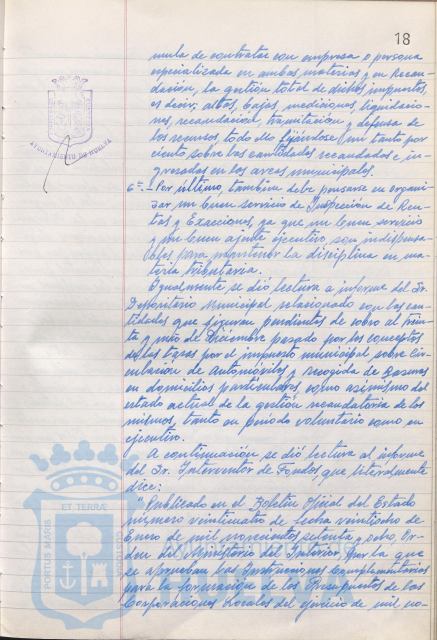 18
mula de contratar con empresa o persona
especializada en ambas materias y en Recau-
dación, la gestión total de dichos impuestos,
es decir; altas, bajas, mediciones, liquidacio-
nes, recaudación, tramitación y defensa de
los recursos, todo ello fijándose un tanto por
ciento sobre las cantidades recaudadas e in-
gresadas en las arcas municipales.
6º.- Por último, también debe pensarse en organi-
zar un buen servicio de Inspección de Ren-
tas y Exacciones, ya que un buen servicio
y un buen agente ejecutivo, son indispensa-
bles para mantener la disciplina en ma-
teria tributaria.
Igualmente se dió lectura a informe del Sr.
Depositario Municipal relacionado con las can-
tidades que figuran pendientes de cobro al trein-
ta y uno de Diciembre pasado por los conceptos
de las tasas por el impuesto municipal sobre Cir-
culación de Automóviles y recogida de Basuras
en domicilios particulares como asimismo del
estado actual de la gestión recaudatoria de los
mismos, tanto en periodo voluntario como en
ejecutivo.
A continuación se dió lectura al informe
del Sr. Interventor de Fondos, que literalmente
dice:
"Publicado en el Boletín Oficial del Estado
número veinticuatro de fecha veintiocho de
Enero de mil novecientos setenta y ocho, Or-
den del Ministerio del Interior por la que
se aprueban las Instrucciones Complementarias
para la formación de los Presupuestos de las
Corporaciones Locales del ejercicio de mil no-
AYUNTAMIENTO DE HUELVA
ET TERRÆ
PORTUS MARIS
CUSTODIA
HUELVA